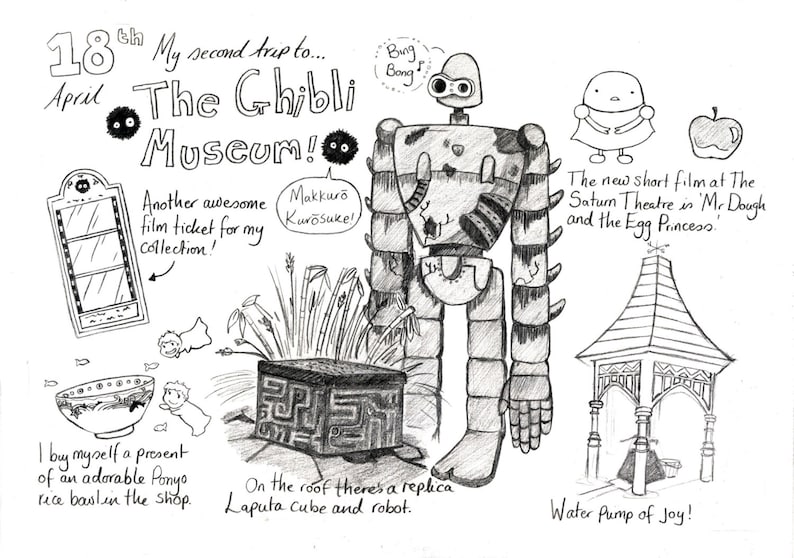 18th
April
My second trip to...
The Ghibli
Museum!
Bing
Bong
Makkurō
Kurōsuke!
Another awesome
film ticket for my
collection!
The new short film at The
Saturn Theatre is 'Mr Dough
and the Egg Princess.'
I buy myself a present
of an adorable Ponyo
rice bowl in the shop.
On the roof there's a replica
Laputa cube and robot.
Water Pump of Joy!